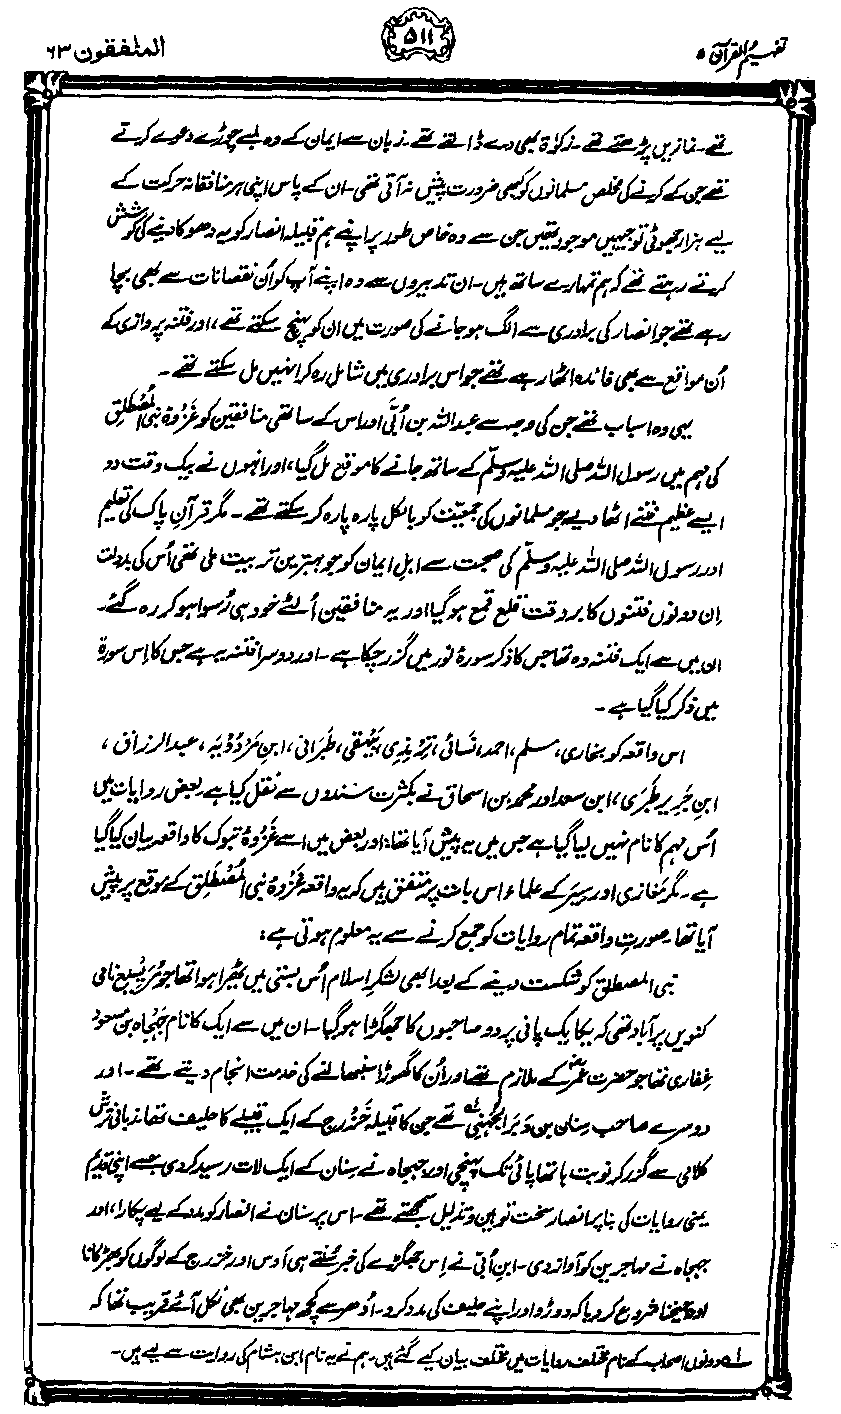 تفہیم القرآن ۵
۵۱۱
المنٰفقون ۶۳
تھے۔ نمازیں پڑھتے تھے۔ زکوٰۃ بھی دے ڈالتے تھے۔ زبان سے ایمان کے وہ لمبے چوڑے دعوے کرتے
تھے جن کے کرنے کی مخلص مسلمانوں کو کبھی ضرورت پیش نہ آتی تھی۔ ان کے پاس اپنی ہر منافقانہ حرکت کے
لیے ہزار جھوٹی توجیہیں موجود تھیں جن سے وہ خاص طور پر اپنے ہم قبیلہ انصار کو یہ دھوکا دینے کی کوشش
کرتے رہتے تھے کہ ہم تمہارے ساتھ ہیں۔ ان تدبیروں سے وہ اپنے آپ کو اُن نقصانات سے بھی بچا
رہے تھے جو انصار کی برادری سے الگ ہو جانے کی صورت میں ان کو پہنچ سکتے تھے، اور فتنہ پردازی کے
اُن مواقع سے بھی فائدہ اٹھا رہے تھے جو اس برادری میں شامل رہ کر انہیں مل سکتے تھے۔
یہی وہ اسباب تھے جن کی وجہ سے عبداللہ بن اُبَیّ اور اس کے ساتھی منافقین کو غَزْوۂ بنی المُصْطَلِق
کی مہم میں رسول اللہ صلی اللہ علیہ وسلّم کے ساتھ جانے کا موقع مل گیا، اور انہوں نے بیک وقت دو
ایسے عظیم فتنے اٹھا دیے جو مسلمانوں کی جمعیّت کو بالکل پارہ پارہ کر سکتے تھے۔ مگر قرآنِ پاک کی تعلیم
اور رسول اللہ صلی اللہ علیہ وسلّم کی صحبت سے اہلِ ایمان کو جو بہترین تربیت ملی تھی اُس کی بدولت
اِن دونوں فتنوں کا بروقت قلع قمع ہو گیا اور یہ منافقین اُلٹے خود ہی رُسوا ہو کر رہ گئے۔
ان میں سے ایک فتنہ وہ تھا جس کا ذکر سورۂ نور میں گزر چکا ہے۔ اور دوسرا فتنہ یہ ہے جس کا اِس سورۃ
میں ذکر کیا گیا ہے۔
اس واقعہ کو بخاری، مسلم، احمد، نَسائی، تِرْمِذی، بَیْہَقی، طَبَرانی، ابنِ مَرْدُوْیَہ، عبدالرزاق،
ابنِ جَریر طَبَرِی، ابن سعد اور محمد بن اسحاق نے بکثرت سندوں سے نقل کیا ہے۔ بعض روایات میں
اُس مہم کا نام نہیں لیا گیا ہے جس میں یہ پیش آیا تھا، اور بعض میں اسے غَزْوۂ تبوک کا واقعہ بیان کیا گیا
ہے۔ مگر مَغازی اور سِیَر کے علماء اس بات پر متفق ہیں کہ یہ واقعہ غَزْوۂ بنی المُصْطَلِق کے موقع پر پیش
آیا تھا۔ صورتِ واقعہ تمام روایات کو جمع کرنے سے یہ معلوم ہوتی ہے:
بنی المصطلق کو شکست دینے کے بعد ابھی لشکرِ اسلام اُس بستی میں ٹھیرا ہوا تھا جو مُرَیْسِیع نامی
کنویں پر آباد تھی کہ یکایک پانی پر دو صاحبوں کا جھگڑا ہو گیا۔ ان میں سے ایک کا نام جَہْجَاہ بن مسعود
غِفاری تھا جو حضرت عمرؓ کے ملازم تھے اور اُن کا گھوڑا سنبھالنے کی خدمت انجام دیتے تھے۔ اور
دوسرے صاحب سِنان بن وَبَر الجُہَنِی؎۱ تھے جن کا قبیلہ خَزْرج کے ایک قبیلے کا حلیف تھا۔ زبانی ترش
کلامی سے گزر کر نوبت ہاتھا پائی تک پہنچی اور جہجاہ نے سِنان کے ایک لات رسید کر دی جسے اپنی قدیم
یمنی روایات کی بنا پر انصار سخت توہین و تذلیل سمجھتے تھے۔ اس پر سنان نے انصار کو مدد کے لیے پکارا، اور
جہجاہ نے مہاجرین کو آواز دی۔ ابنِ اُبَیّ نے اِس جھگڑے کی خبر سُنتے ہی اَوس اور خزرج کے لوگوں کو بھڑکانا
اور چیخنا شروع کر دیا کہ دوڑو اور اپنے حلیف کی مدد کرو۔ اُدھر سے کچھ مہاجرین بھی نکل آئے۔ قریب تھا کہ
؎۱ دونوں اصحاب کے نام مختلف روایات میں مختلف بیان کیے گئے ہیں۔ ہم نے یہ نام ابن ہشام کی روایت سے لیے ہیں۔